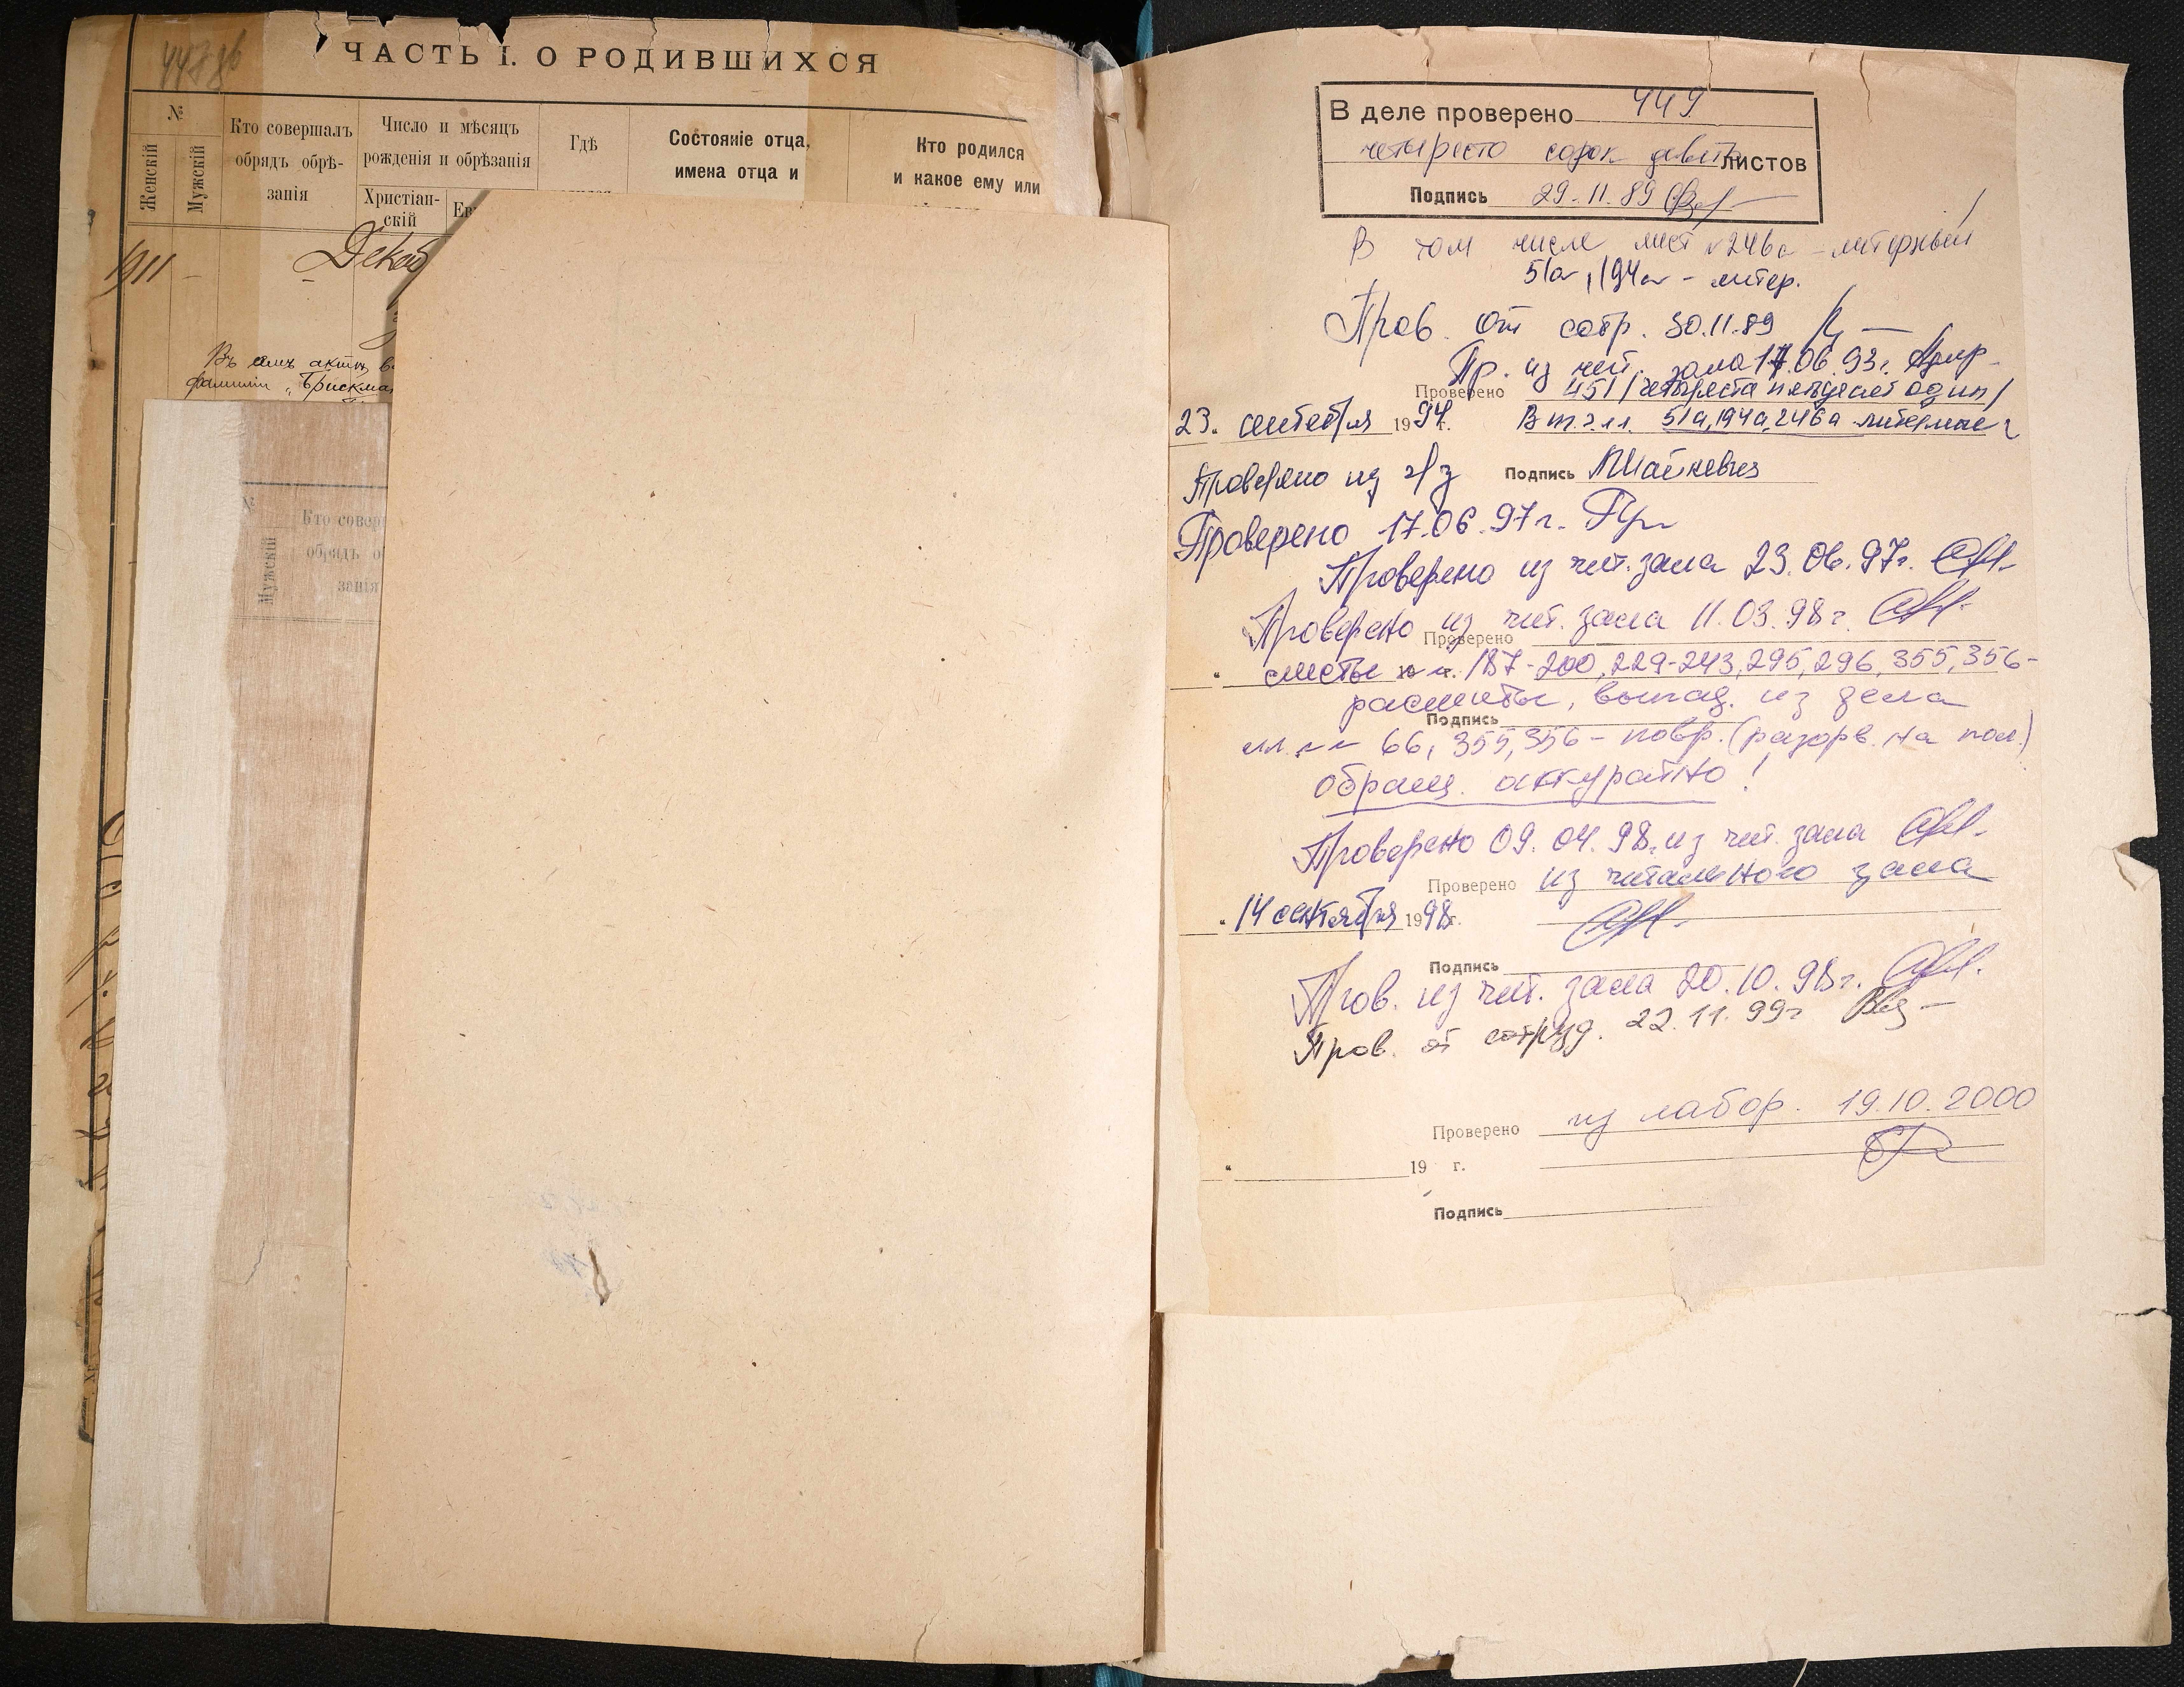 448 об
ЧАСТЬ I. О РОДИВШИХСЯ
№
Женскій
Мужскій
Кто совершалъ
обрядъ обрѣ-
занія
Число и мѣсяцъ
рожденія и обрѣзанія
Христіан-
скій
Ев
Гдѣ
Состояніе отца,
имена отца и
Кто родился
и какое ему или
1911 –
Декаб
Въ семъ актѣ в
фамиліи „Брискма
№
Мужскій
Кто совер
обрядъ о
занія
В деле проверено 449
четыресто сорок девять листов
Подпись 29.11.89
В том числе лист №246а – литерный
51а, 194а – литер.
Пров. от сотр. 30.11.89
Пр. из чит. зала 17.06.93г.
Проверено 451 /четыреста пятьдесят один/
23. сентября 1994г. В т.ч. л.л. 51а, 194а, 246а литерные
Проверено из ч/з Подпись
Проверено 17.06.97г.
Проверено из чит. зала 23.06.97г.
Проверено из чит. зала 11.03.98г.
Проверено
листы 187-200, 229-243, 295, 296, 355, 356-
расшиты, выпад. из дела
Подпись
66, 355, 356 – повр. (разорв. на пол.)
обращ. аккуратно!
Проверено 09.04.98. из чит. зала
Проверено из читального зала
„ 14 сентября 1998г.
Подпись
Пров. из чит. зала 20.10.98г.
Пров. от сотруд. 22.11.99г
Проверено из лабор. 19.10.2000
„ 19 г.
Подпись